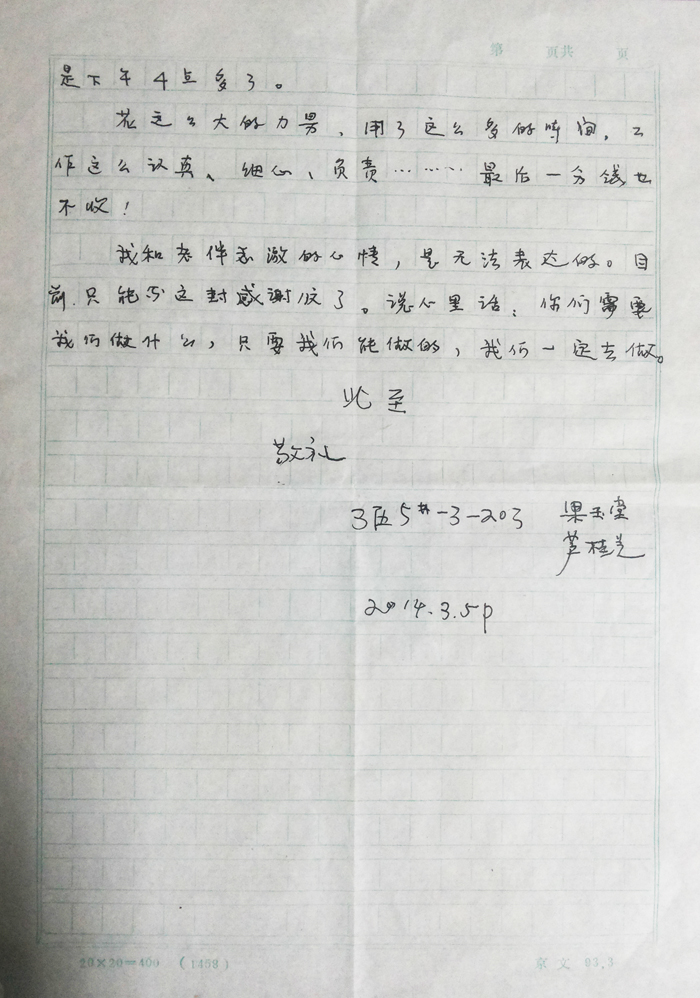 第 页共 页
是下午4点多了。
花这么大的力男，用了这么多的时间，工
作这么认真、细心、负责………最后一分钱也
不收！
我和老伴感激的心情，是无法表达的。目
前只能写这封感谢信了。说心里话：你们需要
我们做什么，只要我们能做的，我们一定去做。
此至
敬礼
3区5#-3-203 梁玉堂
芦桂兰
2014.3.5p
20×20=400 (1458)
京文 93.3